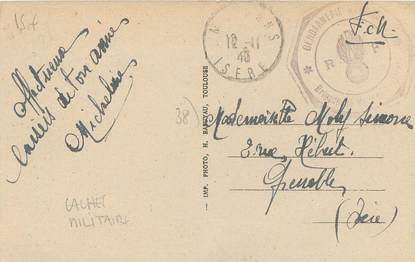 15€
Affectueux
baisers de ton amie
Micheline
CACHET
MILITAIRE
38)
IMP. PHOTO, H. TOULOUSE
12-11
ISERE
F.M.
GENDARMERIE
R F
Mademoiselle Simone
2 rue Hébert
Grenoble
(Isère)